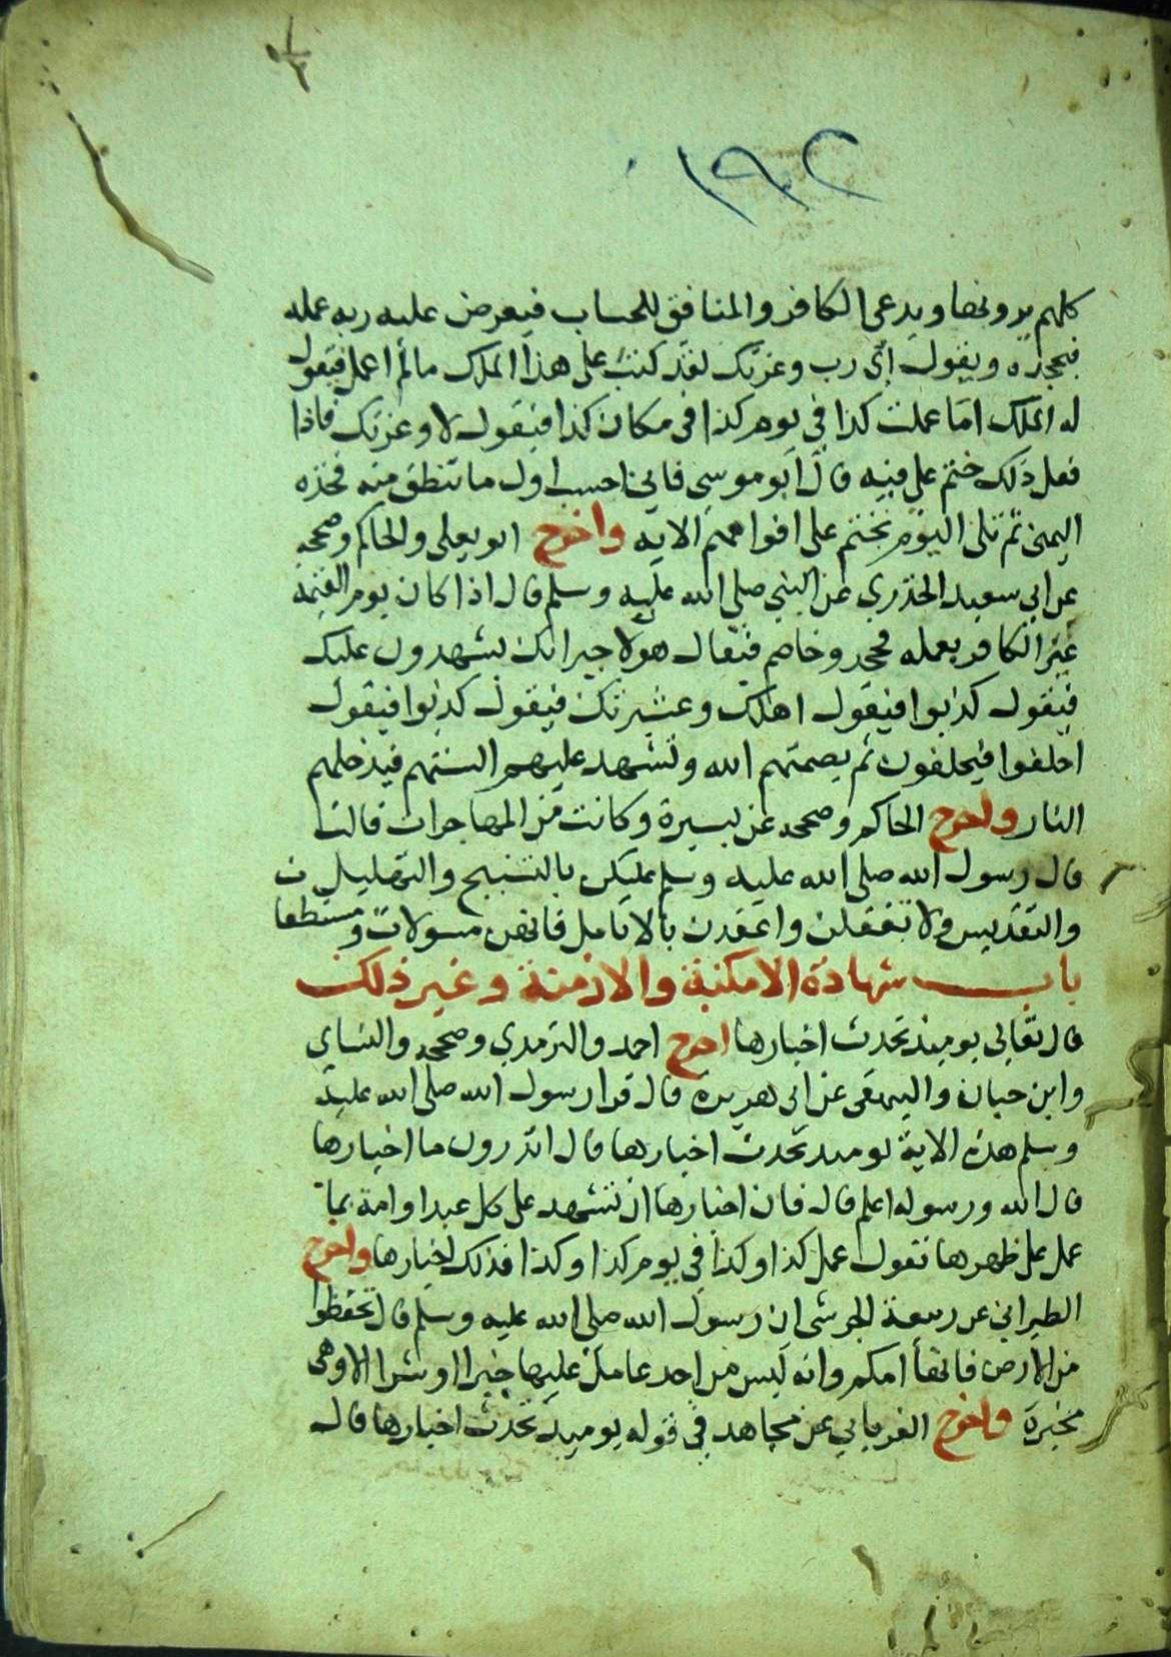 ١٩٢
كلهم يرونها ويدعى الكافر والمنافق للحساب فيعرض عليه ربه عمله
فيجحده ويقول أي رب وعزتك لقد كتب على هذا الملك مالم اعمل فيقول
له الملك اما عملت كذا في يوم كذا في مكان كذا فيقول لا وعزتك فاذا
فعل ذلك ختم على فيه قال أبو موسى فاني احسب اول ما تنطق منه فخذه
اليمنى ثم تلى اليوم نختم على افواههم الاية واخرج ابو يعلى والحاكم وصححه
عن ابي سعيد الخدري عن النبي صلى الله عليه وسلم قال اذا كان يوم القيمة
عير الكافر بعمله فجحد وخاصم فيقال هولا جيرانك يشهدون عليك
فيقول كذبوا فيقول اهلك وعشيرتك فيقول كذبوا فيقول
احلفوا فيحلفون ثم يصمتهم الله وتشهد عليهم السنتهم فيدخلهم
النار واخرج الحاكم وصححه عن يسيرة وكانت من المهاجرات قالت
قال رسول الله صلى الله عليه وسلم عليكن بالتسبيح والتهليل
والتقديس ولا تغفلن واعقدن بالانامل فانهن مسولات ومستنطقا
باب شهادة الامكنة والازمنة وغير ذلك
قال تعالى يوميذ تحدث اخبارها اخرج احمد والترمدي وصححه والنساي
وابن حبان والبيهقى عن ابى هريرة قال قرا رسول الله صلى الله عليه
وسلم هذه الاية يوميذ تحدث اخبارها قال اتدرون ما اخبارها
قال الله ورسوله اعلم قال فان اخبارها ان تشهد على كل عبد او امة بما
عمل على ظهرها تقول عمل كذا وكذا في يوم كذا وكذا فذلك اخبارها واخرج
الطبراني عن ربيعة الجرشى ان رسول الله صلى الله عليه وسلم قال تحفظوا
من الارض فانها أمكم وانه ليس من احد عامل عليها خيرا او شرا الا وهى
مخبرة واخرج الفريابي عن مجاهد في قوله يوميذ تحدث اخبارها قال